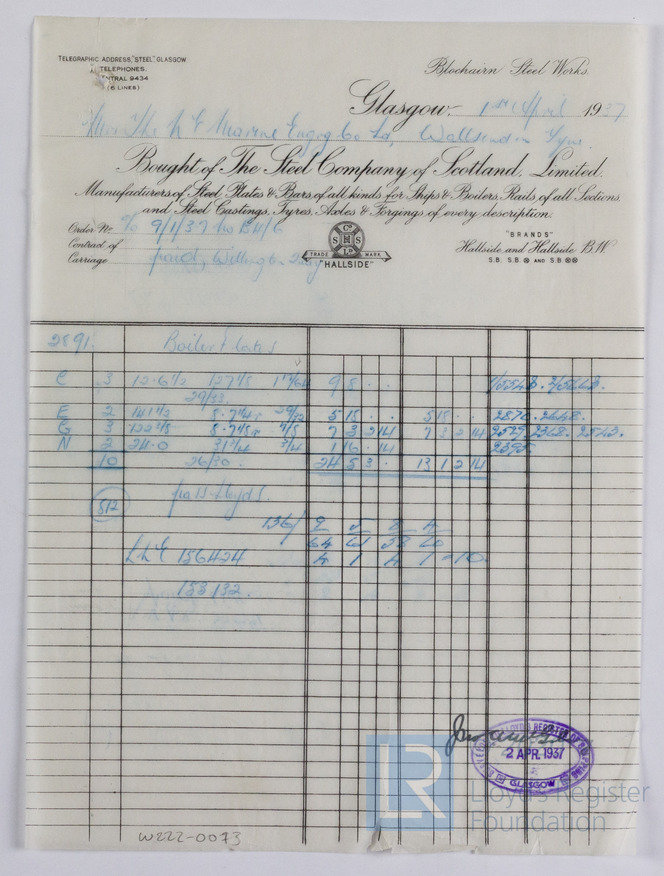 TELEGRAPHIC ADDRESS, "STEEL", GLASGOW
TELEPHONES.
CENTRAL 9434
(6 LINES)
Blochairn Steel Works.
Glasgow, 1st April 1937
The N E Marine Engrg Co Ld, Wallsend on Tyne.
Bought of The Steel Company of Scotland, Limited.
Manufacturers of Steel Plates & Bars of all kinds for Ships & Boilers, Rails of all Sections,
and Steel Castings, Tyres, Axles & Forgings of every description.
Order No 9/1/37 No B11/6
Contract of
Carriage paid, Willington Quay
S Co S Ld
TRADE MARK
"HALLSIDE"
"BRANDS"
Hallside and Hallside B.W.
S.B. S.B. AND S.B.
2891. Boiler Plates
C 3 12.6 1/2 127 1/8 9 8 . .
29/33.
E 2 141 1/2 29/32 5 15 . . 5 15 . . 2870. 2668.
G 3 122 5/8 7/8 7 3 2 14 7 3 2 14 2579
N 2 24.0 31 1/4 3/4 1 6 . 14 2395.
10 26/30. 24 5 3 . 13 1 2 14
pass Lloyds.
512
136/ 9
64 61 58 60
4 1 4 1 = 10.
156424
153132.
LLOYD'S REGISTER OF SHIPPING
2 APR. 1937
GLASGOW
LR
Lloyd's Register
Foundation
W222-0073